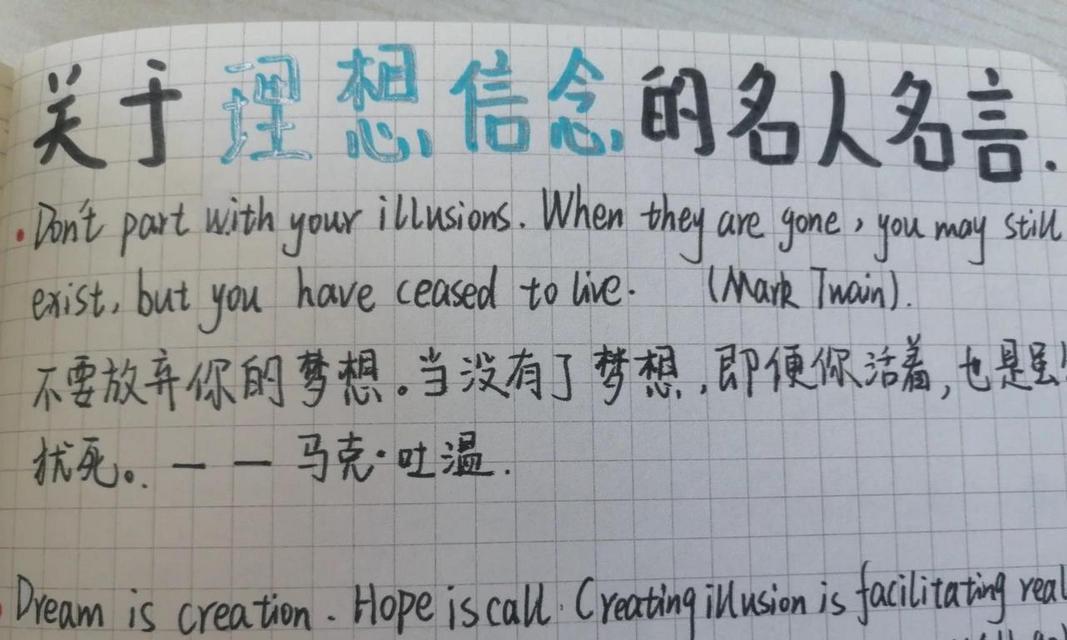 关于理想信念的名人名言.
Don't part with your illusions. When they are gone, you may still
exist, but you have ceased to live. (Mark Twain).
不要放弃你的梦想。当没有了梦想,即便你活着,也是虽
犹死。——马克·吐温.
Dream is creation. Hope is call. Creating illusion is facilitating